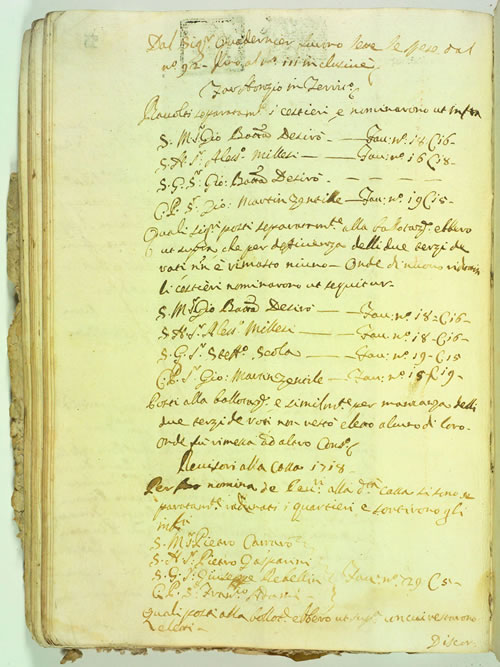 Dal Sig.r Quadernier furno lete le spese dal
n.o 92 fino al n.o 111 inclusive
in Terri
Racolti separatam.te i costieri e nominarono ut infra
S. M. S.r Gio Batta Desirò — Fau: n.o 14 C 16 -
S. A. S.r Aless.o Millesi — Fau: n.o 16 C 18 -
S. G. S.r Gio: Batta Desirò — — — —
C. P. S.r Gio: Martin Zentille — Fau: n.o 19 C 15 -
Quali sig.ri posti separatam.te alla ballotaz.e ebbero
ut supra che per deficienza delli due terzi de
voti non è rimasto niuno - Onde di nuovo
li costieri nominarono ut sequitur -
S. M. S.r Gio Batta Desirò — Fau: n.o 18 - C 16 -
S. A. S.r Aless.o Millesi — Fau: n.o 18 - C 16 -
S. G. S.r Steff.o Scola — Fau: n.o 19 - C 15
C. P. S.r Gio: Martin Zentile — Fau: n.o 15 C 19 -
Posti alla ballotaz.e e similm.te per mancanza delli
due terzi de voti non restò eletto alcuno di loro -
onde fu rimessa ad altro Cons.o
Revisori alla Cassa 1718 -
Per nomina de alla d.ta cassa si sono se
paratam.te i quartieri e sortirono gli
infri
S. M. S.r Pietro Carraro
S. A. S.r Pietro Gasparini
S. G. S.r Giuseppe Fau: n.o 29 C 5 -
C. P. S.r
quali posti alla ballot.e ebbero ut sup.a restarono
eletti -
Discor